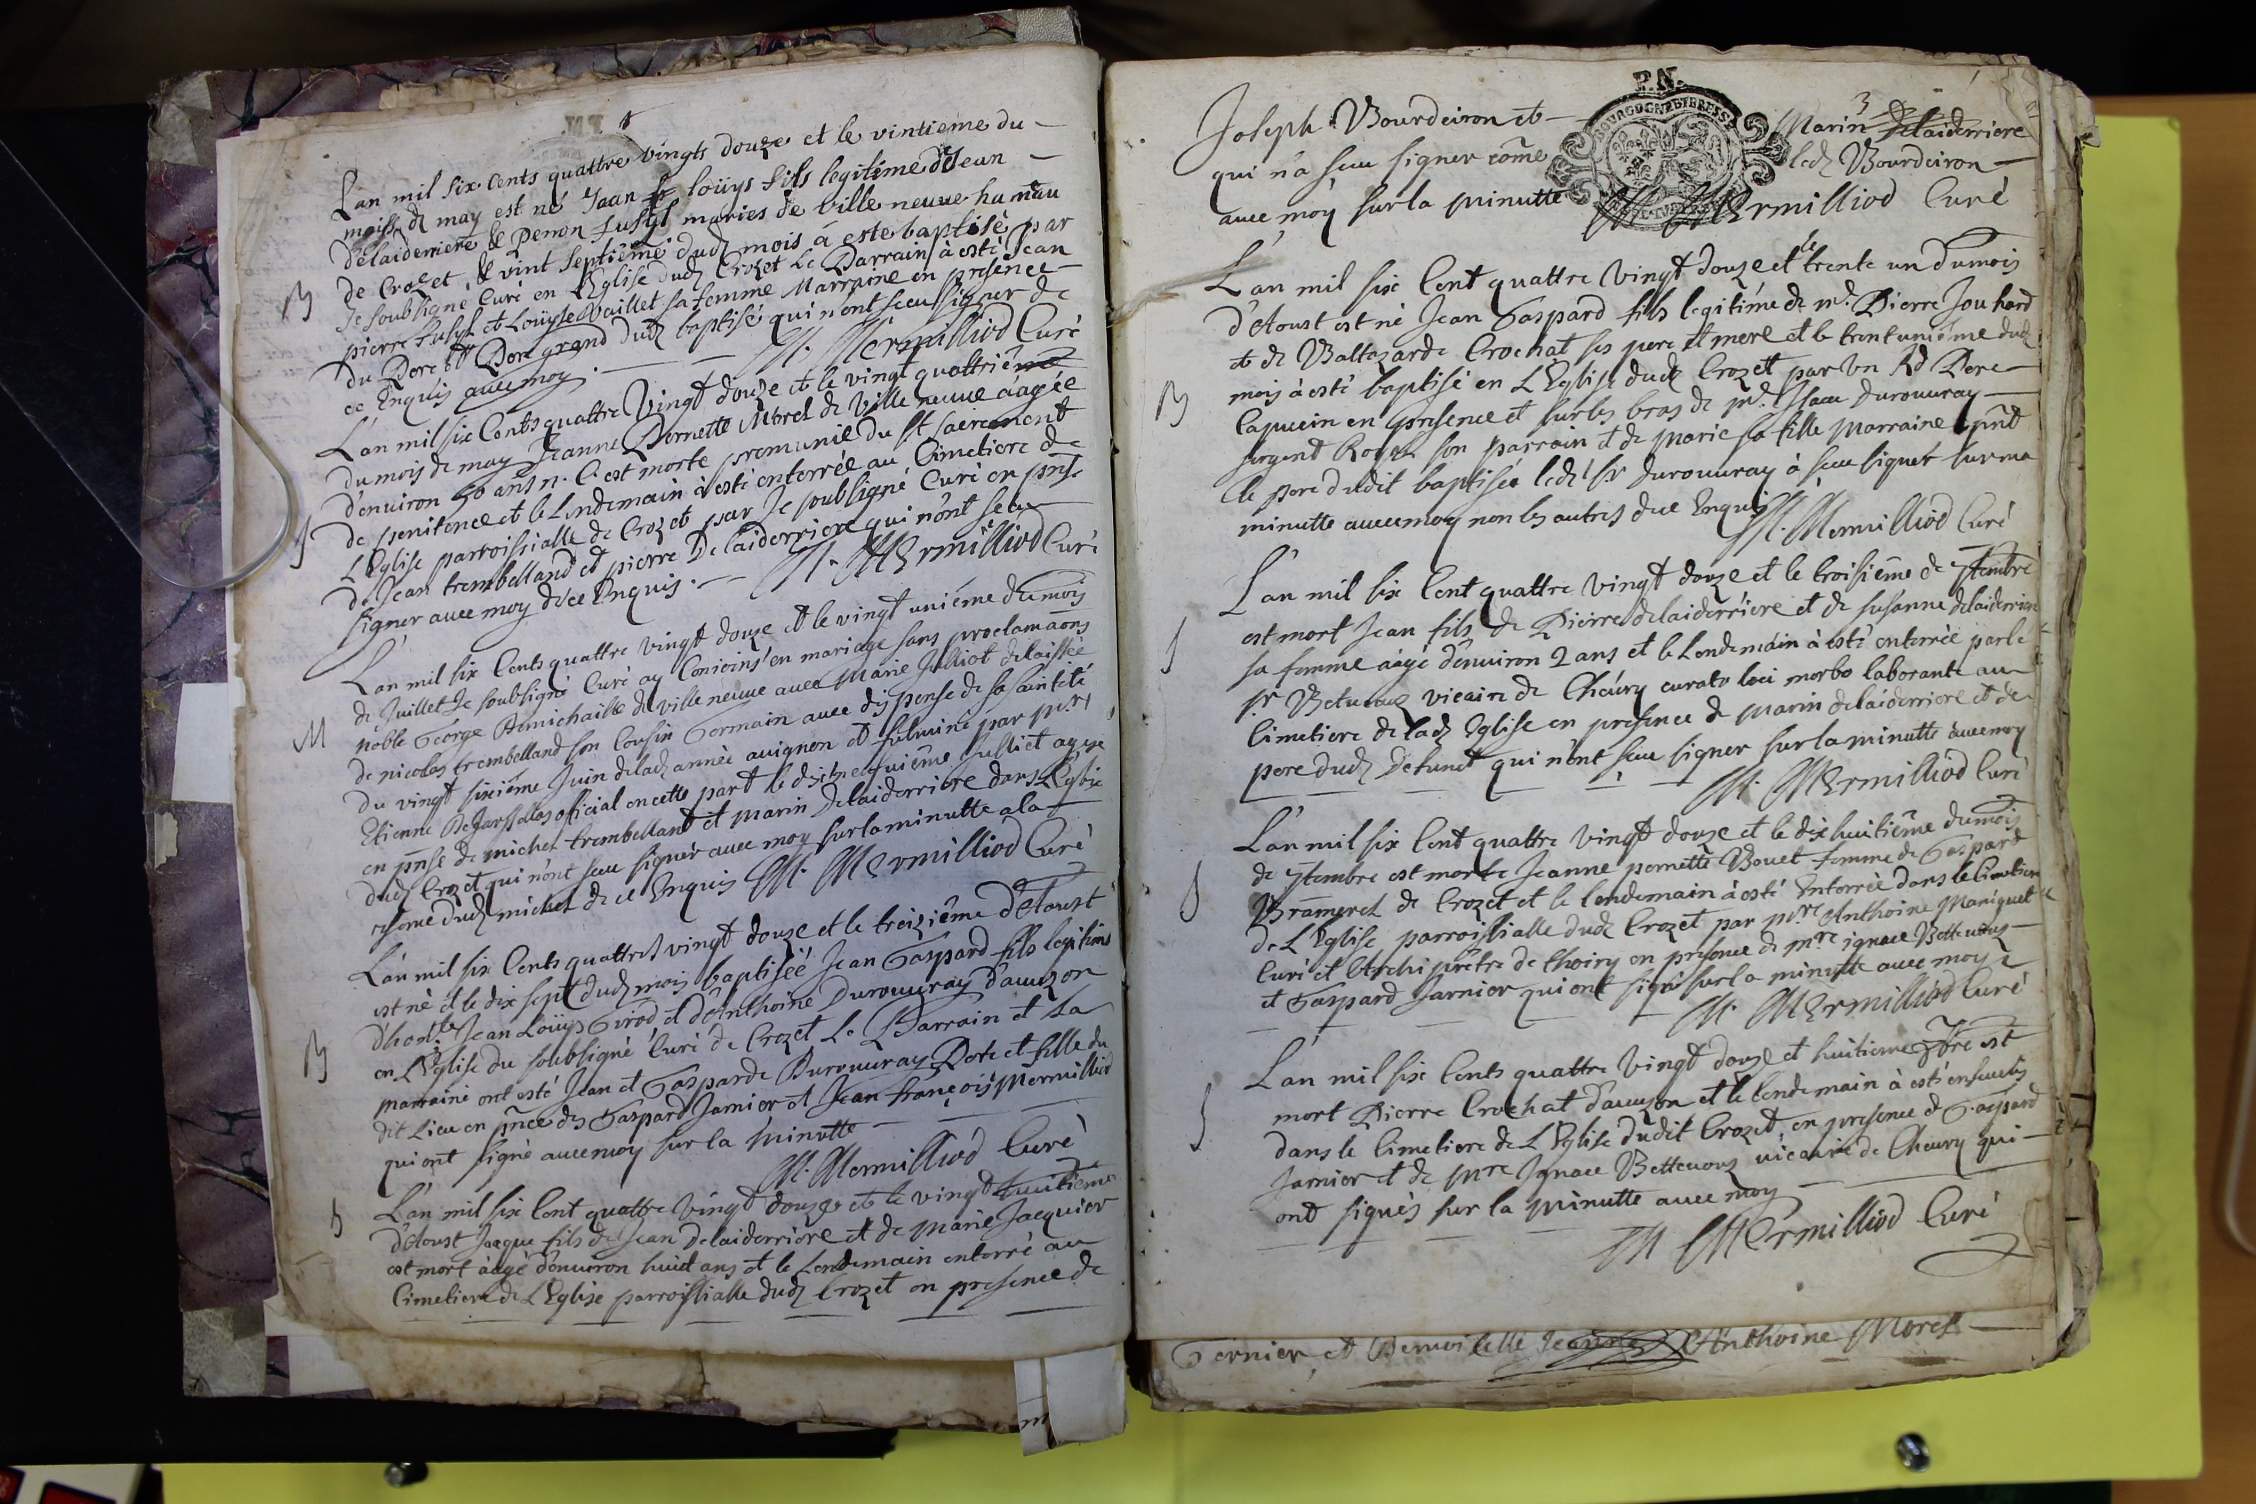 L'an mil six cents quattre vingts douze et le vintieme du
moiss de may est né Jean louÿs fils legitime de Jean
delaiderriere & Penon fusyl mariés de Ville neuve hameau
de Crozet, & le vint septiême dud mois à este baptisé par
Je soubsigné Curé en l'Eglise dud Crozet Le Parrain à esté Jean
pierre fusyl et Louÿse Vuillet sa femme Marraine en presence
du Pere & Pere grand dud baptisé qui n'ont sceu signer de
ce Enquis avec moy. M. Mermilliod Curé
L'an mil six Cents quattre Vingt douze et le vingt quattriême
du mois de may Jeanne Pernette Morel de Ville neuve aagée
d'environ 50 ans n. C. est morte premunie du st sacrement
de penitence et le Lendemain à esté enterrée au Cimetiere de
L'Eglise parroissialle de Crozet par Je soubsigné Curé en pnse
de Jean trembelland et pierre Delaiderriere qui n'ont sceu
signer avec moy de ce Enquis. M. Mermilliod Curé
L'an mil six Cents quattre vingt douze et le vingt unième du mois
de Juillet Je soubsigné Curé ay Conioins en mariage sans proclamaons
noble George Armichaille de ville neuve avec Marie Julliot delaissée
de nicolas trembelland son Cousin Germain avec dispense de sa sainteté
du vingt sixiême Juin delad année avignon et fulminé par mr
Etienne official en cette part le dixneufuième Julliet
en pnse de michel trembelland et marin delaiderriere dans L'Eglise
dud Crozet qui n'ont sceu signer avec moy sur la minutte a la
dud michel de ce Enquis M. Mermilliod Curé
L'an mil six Cents quattre vingt douze et le treizième d'Aoust
est né et le dix sept dud mois baptiséé Jean Gaspard fils legitime
d'hon.ble Jean Louÿs Girod et d'Anthoine Durouvray d'avuzon
en L'Eglise du soubsigné Curé de Crozet Le Parrain et La
marraine ont esté Jean et Gasparde Durouvray Pere et fille du
dit Lieu en pnce de Gaspard Jarnier et Jean françois Mermilliod
qui ont signé avec moy sur la minutte
M. Mermilliod Curé
L'an mil six Cent quattre vingt douze et le vingt huitieme
d'Aoust Jacque fils de Jean Delaiderriere et de Marie Jacquier
est mort aagé d'environ huict ans et le Lendemain enterré au
Cimetiere de L'Eglise parroissialle dud Crozet en presence de
B
S
M
B
S
3
P.N.
BOURGOGNE ET BRESSE
Joseph Bourdeiron et Marin Delaiderriere
qui n'a sceu signer côme led Bourdeiron
avec moy sur la minutte M. Mermilliod Curé
L'an mil six Cent quattre Vingt douze et le trente un du mois
d'Aoust est né Jean Gaspard fils legitime de md. Pierre Jouhard
et de Baltazarde Crochat ses pere et mere et le trent unième dud
mois à esté baptisé en L'Eglise dud Crozet par un Rd Pere
Capucin en presence et sur les bras de md. Isaac Durouvray
sergent Royal son parrain et de Marie sa fille Marraine pnt
le pere dudit baptisée led sr Durouvray à sceu signer sur ma
minutte avec moy non les autres de ce Enquis M. Mermilliod Curé
L'an mil six Cent quattre vingt douze et le troisiême de 7tembre
est mort Jean fils de Pierre delaiderriere et de susanne delaiderriere
sa femme aagé d'environ 2 ans et le Lendemain à esté enterrée par le
sr Betuvuz vicaire de Cheury curato loci morbo laborante au
Cimetiere de lad Eglise en presence de marin delaiderriere et de
pere dud Defunct qui n'ont sceu signer sur la minutte avec moy
M. Mermilliod Curé
L'an mil six Cent quattre vingt douze et le dix huitiême du mois
de 7tembre est morte Jeanne pernette Bouet femme de Gaspard
Bramerel de Crozet et le lendemain à esté Enterrée dans le Cimetiere
de L'Eglise parroissialle dud Crozet par mre Anthoine Maniquet
Curé et Archiprêtre de thoiry en presence de mre ignace Bettevouz
et Gaspard Jarnier qui ont signé sur la minutte avec moy
M. Mermilliod Curé
L'an mil six Cents quattre Vingt douze et huitieme est
mort Pierre Crochat d'avuzon et le lendemain à esté ensevelis
dans le Cimetiere de L'Eglise dudit Crozet en presence de Gaspard
Jarnier et de mre Ignace Bettevouz vicaire de Cheury qui
ont signés sur la minutte avec moy
M Mermilliod Curé
B
S
S
S
Gernier et Demoiselle Anthoine Morel